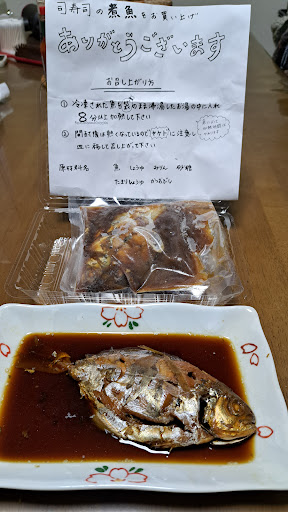 司寿司の煮魚をお買い上げ
ありがとうございます
お召し上がり方
① 冷凍された魚を袋のまま沸騰したお湯の中に入れ
8分以上加熱して下さい
② 開封後は熱くなっているのでヤケドに注意し
皿に移して召し上がって下さい
原材料名 魚 しょうゆ みりん 砂糖
たまりしょうゆ かつおだし